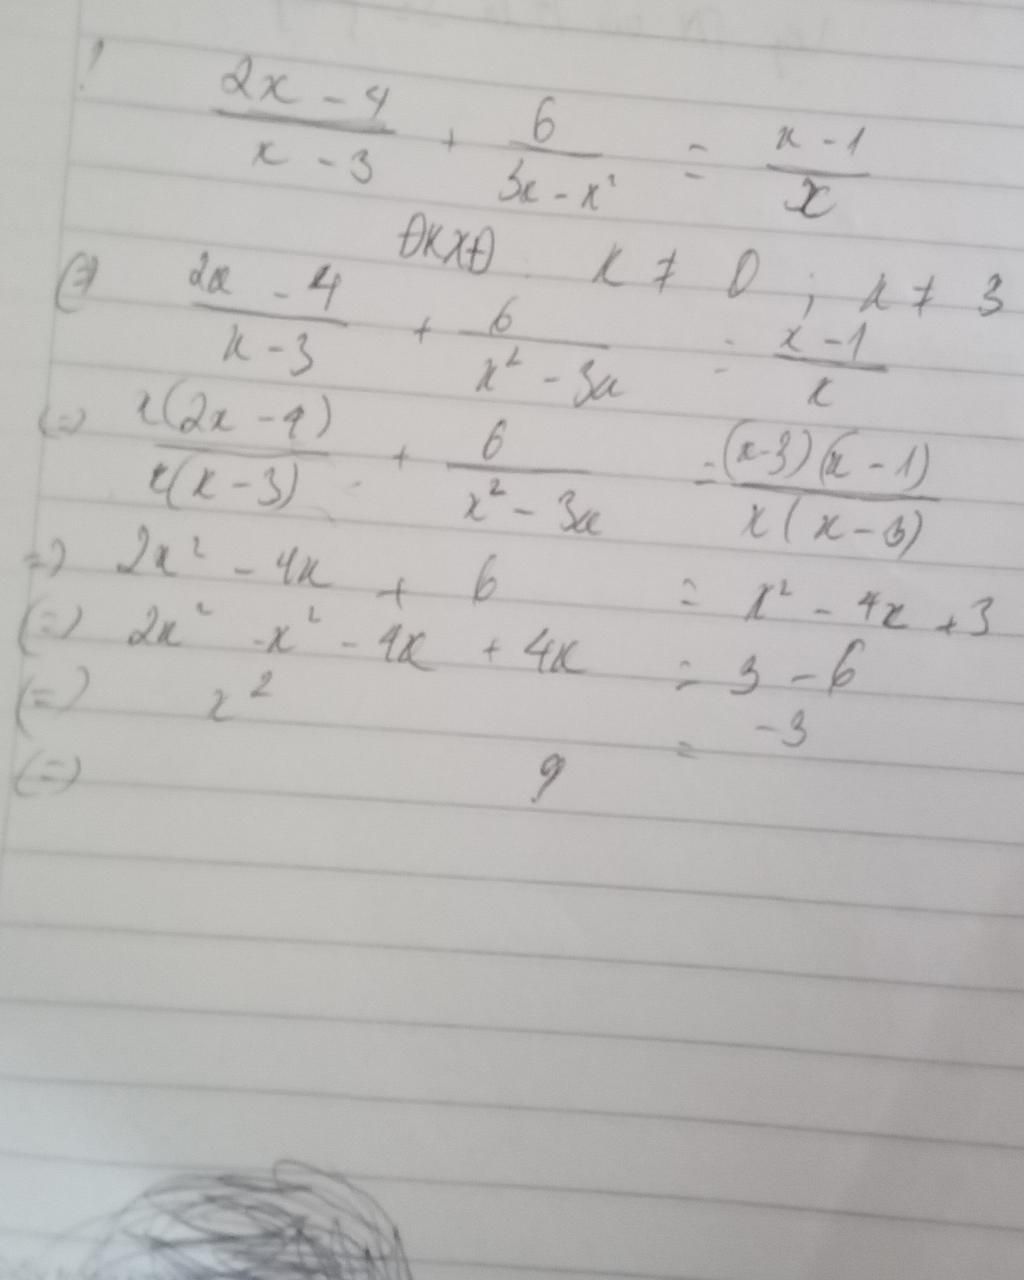 \frac{2x - 4}{x - 3} + \frac{6}{3x - x^2} = \frac{x - 1}{x}
ĐKXĐ : x ≠ 0 ; x ≠ 3
(=) \frac{2x - 4}{x - 3} + \frac{6}{x^2 - 3x} = \frac{x - 1}{x}
(=) \frac{x(2x - 4)}{x(x - 3)} + \frac{6}{x^2 - 3x} = \frac{(x - 3)(x - 1)}{x(x - 3)}
=) 2x² - 4x + 6 = x² - 4x + 3
(=) 2x² - x² - 4x + 4x = 3 - 6
(=) x² = -3
(=) ?